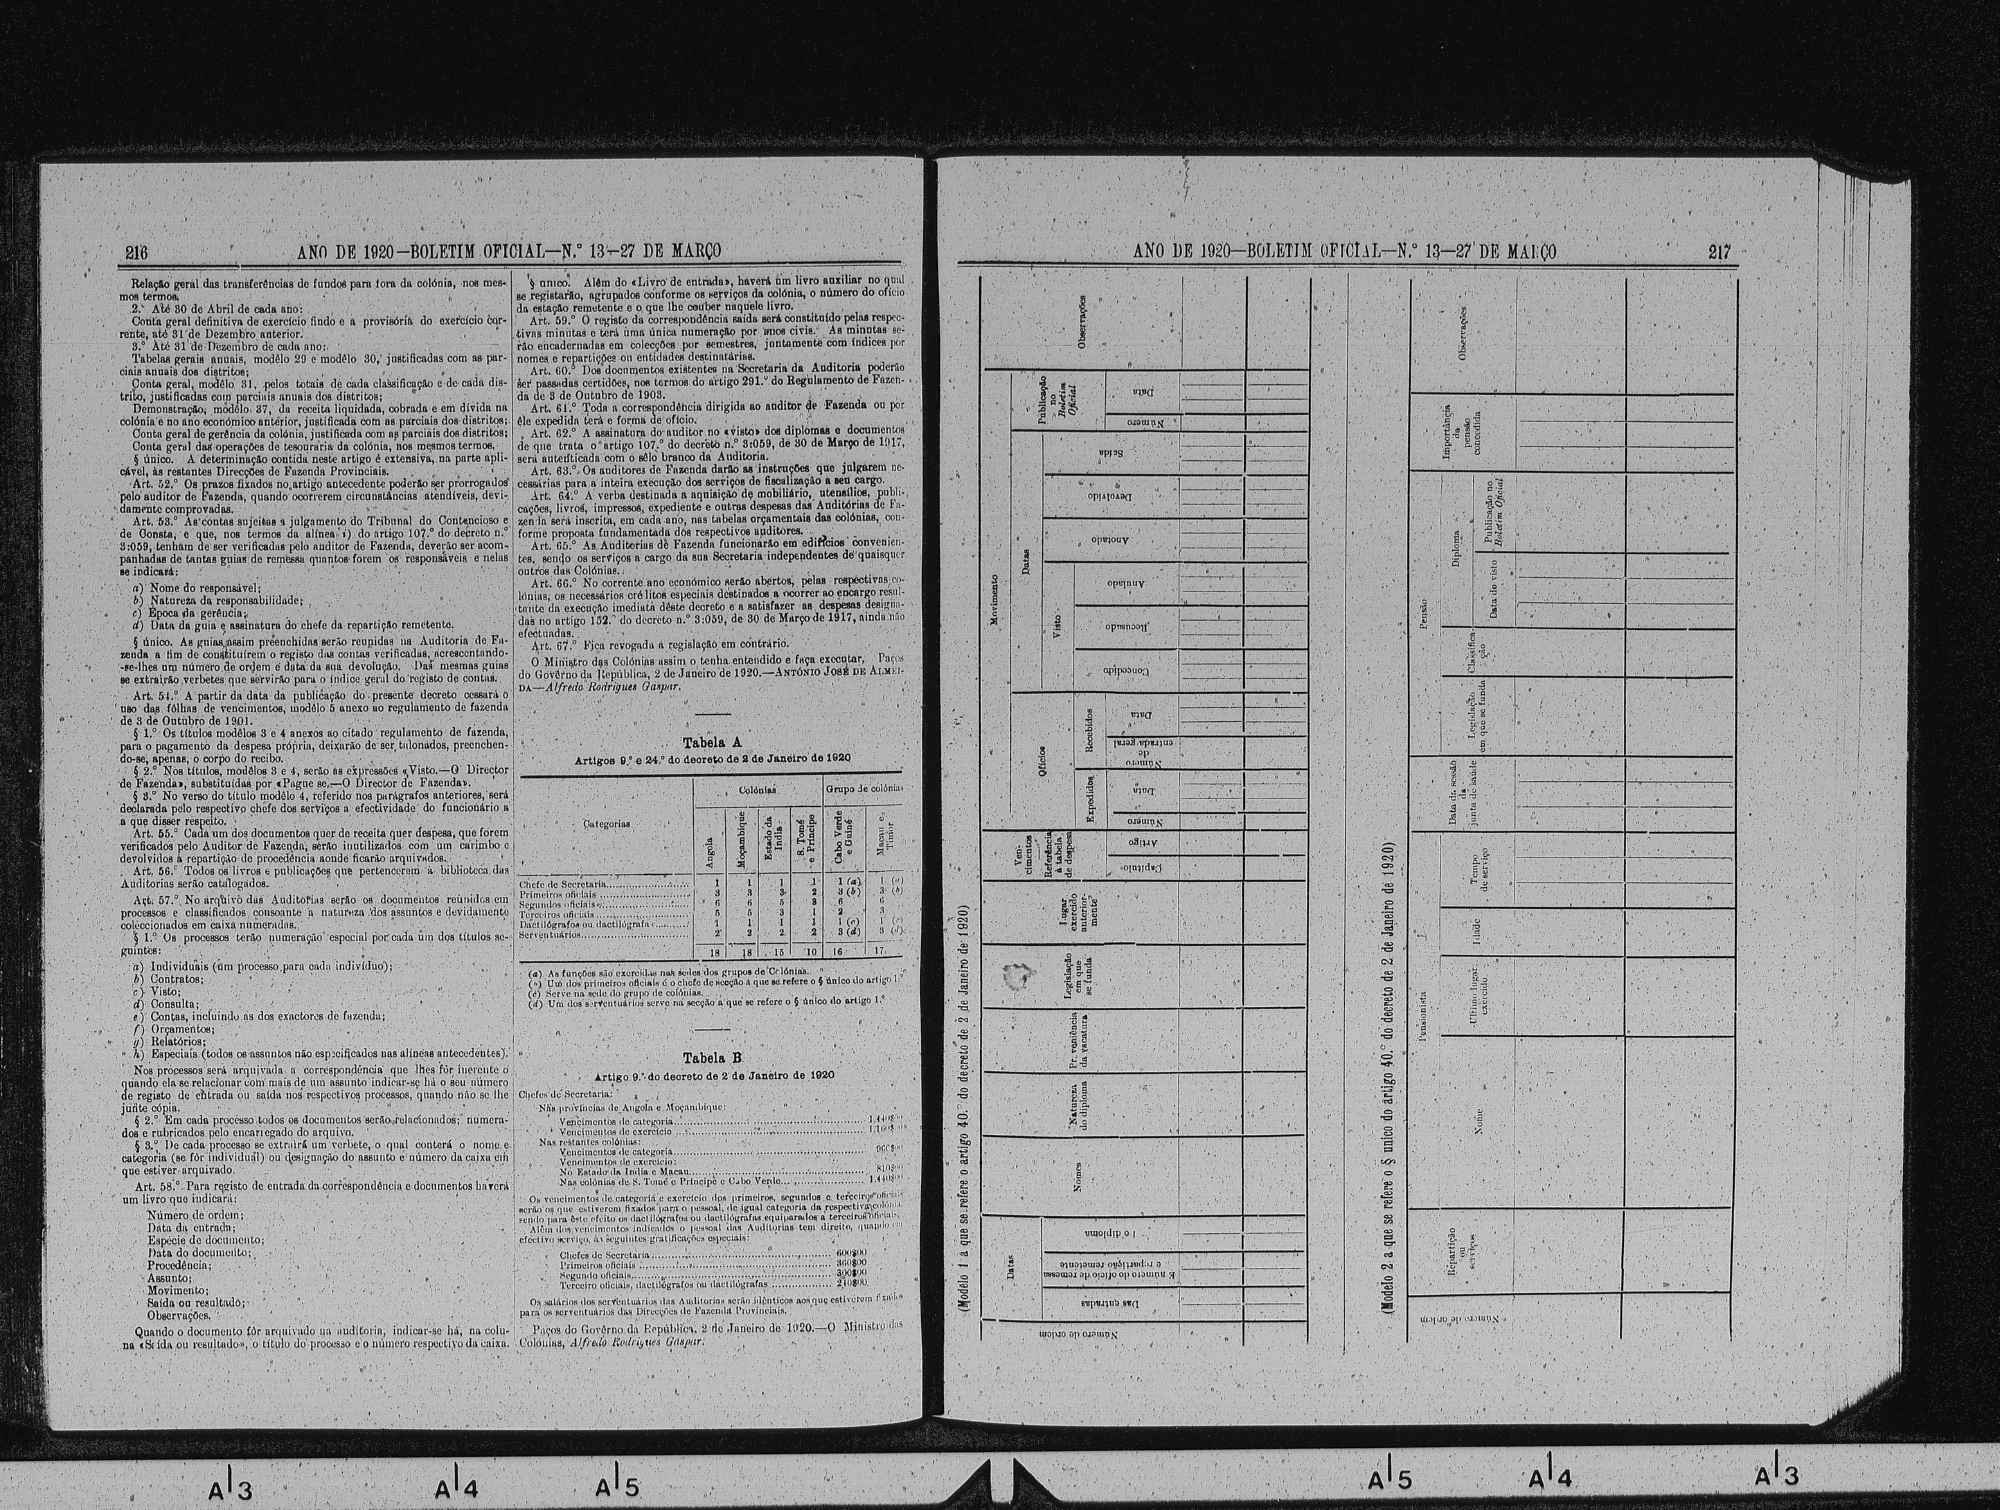 216 ANO DE 1920—BOLETIM OFICIAL—N.º 13—27 DE MARÇO
Relação geral das transferências de fundos para fora da colónia, nos mes-
mos termos.
2.º Até 30 de Abril de cada ano:
Conta geral definitiva de exercício findo e a provisória do exercício cor-
rente, até 31 de Dezembro anterior.
3.º Até 31 de Dezembro de cada ano:
Tabelas gerais anuais, modêlo 29 e modêlo 30, justificadas com as par-
ciais anuais dos distritos;
Conta geral, modêlo 31, pelos totais de cada classificação e de cada dis-
trito, justificadas com parciais anuais dos distritos;
Demonstração, modêlo 37, da receita liquidada, cobrada e em dívida na
colónia e no ano económico anterior, justificada com as parciais dos distritos;
Conta geral de gerência da colónia, justificada com as parciais dos distritos;
Conta geral das operações de tesouraria da colónia, nos mesmos termos.
§ único. A determinação contida neste artigo é extensiva, na parte apli-
cável, às restantes Direcções de Fazenda Provinciais.
Art. 52.º Os prazos fixados no artigo antecedente poderão ser prorrogados
pelo auditor de Fazenda, quando ocorrerem circunstâncias atendíveis, devi-
damente comprovadas.
Art. 53.º As contas sujeitas a julgamento do Tribunal do Contencioso e
de Consta, e que, nos termos da alínea i) do artigo 107.º do decreto n.º
3:059, tenham de ser verificadas pelo auditor de Fazenda, deverão ser acom-
panhadas de tantas guias de remessa quantos forem os responsáveis e nelas
se indicará:
a) Nome do responsável;
b) Natureza da responsabilidade;
c) Época da gerência;
d) Data da guia e assinatura do chefe da repartição remetente.
§ único. As guias assim preenchidas serão reunidas na Auditoria de Fa-
zenda a fim de constituírem o registo das contas verificadas, acrescentando-
-se-lhes um número de ordem e data da sua devolução. Das mesmas guias
se extrairão verbetes que servirão para o índice geral do registo de contas.
Art. 54.º A partir da data da publicação do presente decreto cessará o
uso das fôlhas de vencimentos, modêlo 5 anexo ao regulamento de fazenda
de 3 de Outubro de 1901.
§ 1.º Os títulos modêlos 3 e 4 anexos ao citado regulamento de fazenda,
para o pagamento da despesa própria, deixarão de ser talonados, preenchen-
do-se, apenas, o corpo do recibo.
§ 2.º Nos títulos, modêlos 3 e 4, serão as expressões «Visto.—O Director
de Fazenda», substituídas por «Pague se.—O Director de Fazenda».
§ 3.º No verso do título modêlo 4, referido nos parágrafos anteriores, será
declarada pelo respectivo chefe dos serviços a efectividade do funcionário a
a que disser respeito.
Art. 55.º Cada um dos documentos quer de receita quer despesa, que forem
verificados pelo Auditor de Fazenda, serão inutilizados com um carimbo e
devolvidos à repartição de procedência aonde ficarão arquivados.
Art. 56.º Todos os livros e publicações que pertencerem à biblioteca das
Auditorias serão catalogados.
Art. 57.º No arquivo das Auditorias serão os documentos reünidos em
processos e classificados consoante a natureza dos assuntos e devidamente
coleccionados em caixa numeradas.
§ 1.º Os processos terão numeração especial por cada um dos títulos se-
guintes:
a) Individuais (um processo para cada indivíduo);
b) Contratos;
c) Visto;
d) Consulta;
e) Contas, incluindo as dos exactores de fazenda;
f) Orçamentos;
g) Relatórios;
h) Especiais (todos os assuntos não especificados nas alíneas antecedentes).
Nos processos será arquivada a correspondência que lhes fôr inerente e
quando ela se relacionar com mais de um assunto indicar-se há o seu número
de registo de entrada ou saída nos respectivos processos, quando não se lhe
junte cópia.
§ 2.º Em cada processo todos os documentos serão relacionados, numera-
dos e rubricados pelo encarregado do arquivo.
§ 3.º De cada processo se extrairá um verbete, o qual conterá o nome e
categoria (se fôr individual) ou designação do assunto e número da caixa em
que estiver arquivado.
Art. 58.º Para registo de entrada da correspondência e documentos haverá
um livro que indicará:
Número de ordem;
Data da entrada;
Espécie de documento;
Data do documento;
Procedência;
Assunto;
Movimento;
Saída ou resultado;
Observações.
Quando o documento fôr arquivado na auditoria, indicar-se há, na colu-
na «Saída ou resultado», o título do processo e o número respectivo da caixa.
§ único. Além do «Livro de entrada», haverá um livro auxiliar no qual
se registarão, agrupados conforme os serviços da colónia, o número do ofício
da estação remetente e o que lhe couber naquele livro.
Art. 59.º O registo da correspondência saída será constituído pelas respec-
tivas minutas e terá uma única numeração por anos civis. As minutas se-
rão encadernadas em colecções por semestres, juntamente com índices por
nomes e repartições ou entidades destinatárias.
Art. 60.º Dos documentos existentes na Secretaria da Auditoria poderão
ser passadas certidões, nos termos do artigo 291.º do Regulamento de Fazen-
da de 3 de Outubro de 1903.
Art. 61.º Toda a correspondência dirigida ao auditor de Fazenda ou por
êle expedida terá e forma de ofício.
Art. 62.º A assinatura do auditor no «visto» dos diplomas e documentos
de que trata o artigo 107.º do decreto n.º 3:059, de 30 de Março de 1917,
será autenticada com o sêlo branco da Auditoria.
Art. 63.º Os auditores de Fazenda darão as instruções que julgarem ne-
cessárias para a inteira execução dos serviços de fiscalização a seu cargo.
Art. 64.º A verba destinada a aquisição de mobiliário, utensílios, publi-
cações, livros, impressos, expediente e outras despesas das Auditórias de Fa-
zenda será inscrita, em cada ano, nas tabelas orçamentais das colónias, con-
forme proposta fundamentada dos respectivos auditores.
Art. 65.º As Auditorias de Fazenda funcionarão em edifícios convenien-
tes, sendo os serviços a cargo da sua Secretaria independentes de quaisquer
outros das Colónias.
Art. 66.º No corrente ano económico serão abertos, pelas respectivas co-
lónias, os necessários créditos especiais destinados a ocorrer ao encargo resul-
tante da execução imediata dêste decreto e a satisfazer as despesas designa-
das no artigo 152.º do decreto n.º 3:059, de 30 de Março de 1917, ainda não
efectuadas.
Art. 67.º Fica revogada a legislação em contrário.
O Ministro das Colónias assim o tenha entendido e faça executar. Paços
do Govêrno da República, 2 de Janeiro de 1920.—ANTÓNIO JOSÉ DE ALMEI-
DA—Alfredo Rodrigues Gaspar.
Tabela A
Artigos 9.º e 24.º do decreto de 2 de Janeiro de 1920
Categorias Colónias Grupo de colónias
Angola Moçambique Estado da India S. Tomé e Príncipe Cabo Verde e Guiné Macau e Timor
Chefe de Secretaria 1 1 1 1 1 (a) 1 (a)
Primeiros oficiais 3 3 3 2 3 (b) 3 (b)
Segundos oficiais 6 6 5 3 6 6
Terceiros oficiais 5 5 3 1 2 3
Dactilógrafos ou dactilógrafa 1 1 1 1 1 (c) 1 (c)
Serventuários 2 2 2 2 3 (d) 3 (d)
18 18 15 10 16 17
(a) As funções são exercidas nas sedes dos grupos de Colónias.
(b) Um dos primeiros oficiais é o chefe de secção a que se refere o § único do artigo 1.º
(c) Serve na sede do grupo de colónias.
(d) Um dos serventuários serve na secção a que se refere o § único do artigo 1.º
Tabela B
Artigo 9.º do decreto de 2 de Janeiro de 1920
Chefes de Secretaria:
Nas províncias de Angola e Moçambique:
Vencimentos de categoria
Vencimentos de exercício
Nas restantes colónias:
Vencimentos de categoria
Vencimentos de exercício:
No Estado da India e Macau
Nas colónias de S. Tomé e Príncipe e Cabo Verde
Os vencimentos de categoria e exercício dos primeiros, segundos e terceiros oficiais
serão os que estiverem fixados para o pessoal, de igual categoria da respectiva colónia
sendo para êste efeito os dactilógrafos ou dactilógrafas equiparados a terceiros oficiais.
Além dos vencimentos indicados o pessoal das Auditorias tem direito, quando em
efectivo serviço, às seguintes gratificações especiais:
Chefes de Secretaria 600$00
Primeiros oficiais 360$00
Segundo oficiais 300$00
Terceiro oficiais, dactilógrafos ou dactilógrafas 240$00
Os salários dos serventuários das Auditorias serão idênticos aos que estiverem fixados
para os serventuários das Direcções de Fazenda Provinciais.
Paços do Govêrno da República, 2 de Janeiro de 1920.—O Ministro das
Colónias, Alfredo Rodrigues Gaspar.
ANO DE 1920—BOLETIM OFICIAL—N.º 13—27 DE MARÇO 217
(Modêlo 1 a que se refere o artigo 40.º do decreto de 2 de Janeiro de 1920)
Número de ordem
Datas
Das entradas
E número do ofício de remessa e repartição remetente
Do diploma
Nomes
Natureza do diploma
Proveniência da vacatura
Legislação em que se funda
Lugar exercido anteriormente
Vencimentos
Referência à tabela de despesa
Capítulo
Artigo
Movimento
Ofícios
Expedidos
Número
Data
Recebidos
Número de entrada geral
Data
Datas
Visto
Concedido
Recusado
Anulado
Anotado
Devolvido
Saída
Publicação no Boletim Oficial
Número
Data
Observações
(Modêlo 2 a que se refere o § unico do artigo 40.º do decreto de 2 de Janeiro de 1920)
Número de ordem
Repartição ou serviços
Pensionista
Nome
Último lugar exercido
Idade
Tempo de serviço
Data da sessão da junta de saúde
Pensão
Legislação em que se funda
Classificação
Diploma
Data do visto
Publicação no Boletim Oficial
Importância da pensão concedida
Observações
A3 A4 A5 A5 A4 A3